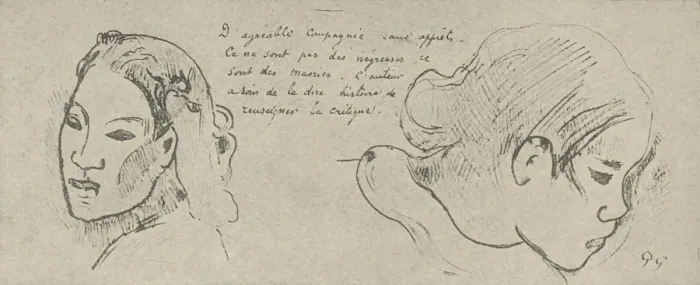 D'agréable Compagnie sans apprêts.
Ce ne sont pas des négresses, ce
sont des maories. L'auteur
a soin de le dire histoire de
renseigner la critique.
PG